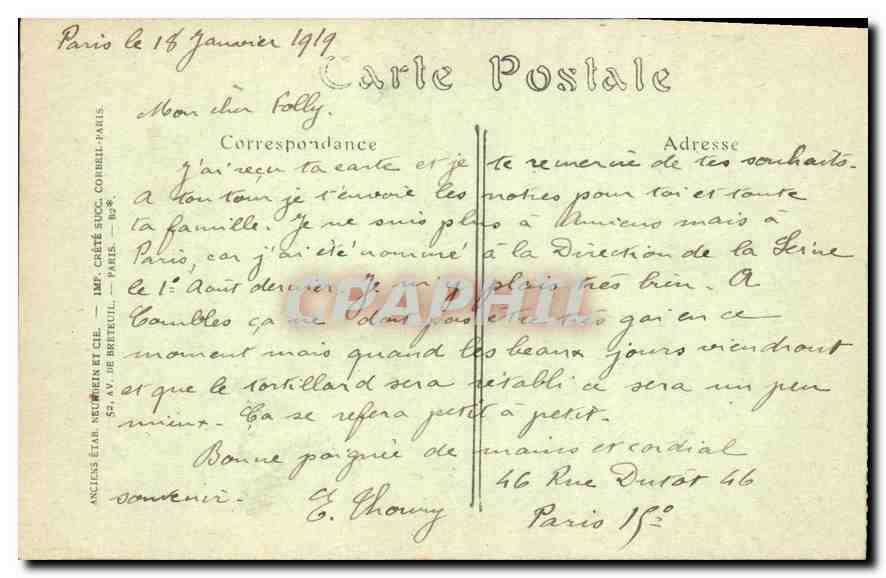 Paris le 18 Janvier 1919
Carte Postale
Mon cher Folly.
Correspondance
Adresse
J'ai reçu ta carte et je te remercie de tes souhaits.
A ton tour je t'envoie les notres pour toi et toute
ta famille. Je ne suis plus à Amiens mais à
Paris, car j'ai été nommé à la Direction de la Seine
le 1º Août dernier. Je m'y plais très bien. A
Combles ça ne doit pas etre très gai en ce
moment mais quand les beaux jours viendront
et que le tortillard sera rétabli ce sera un peu
mieux. Ça se refera petit à petit.
Bonne poignée de mains et cordial
souvenir.
E. Thoury
46 Rue Dutot 46
Paris 15º
ANCIENS ÉTAB. NEURDEIN ET CIE. — IMP. CRÉTÉ SUCC. CORBEIL-PARIS.
52, AV. DE BRETEUIL. — PARIS. — B2*.
CPAPHIL